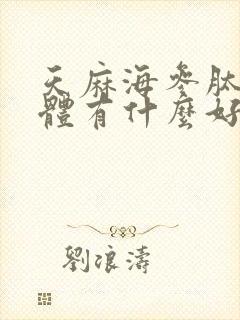 天麻海參肽
體有什麼好
劉浪濤